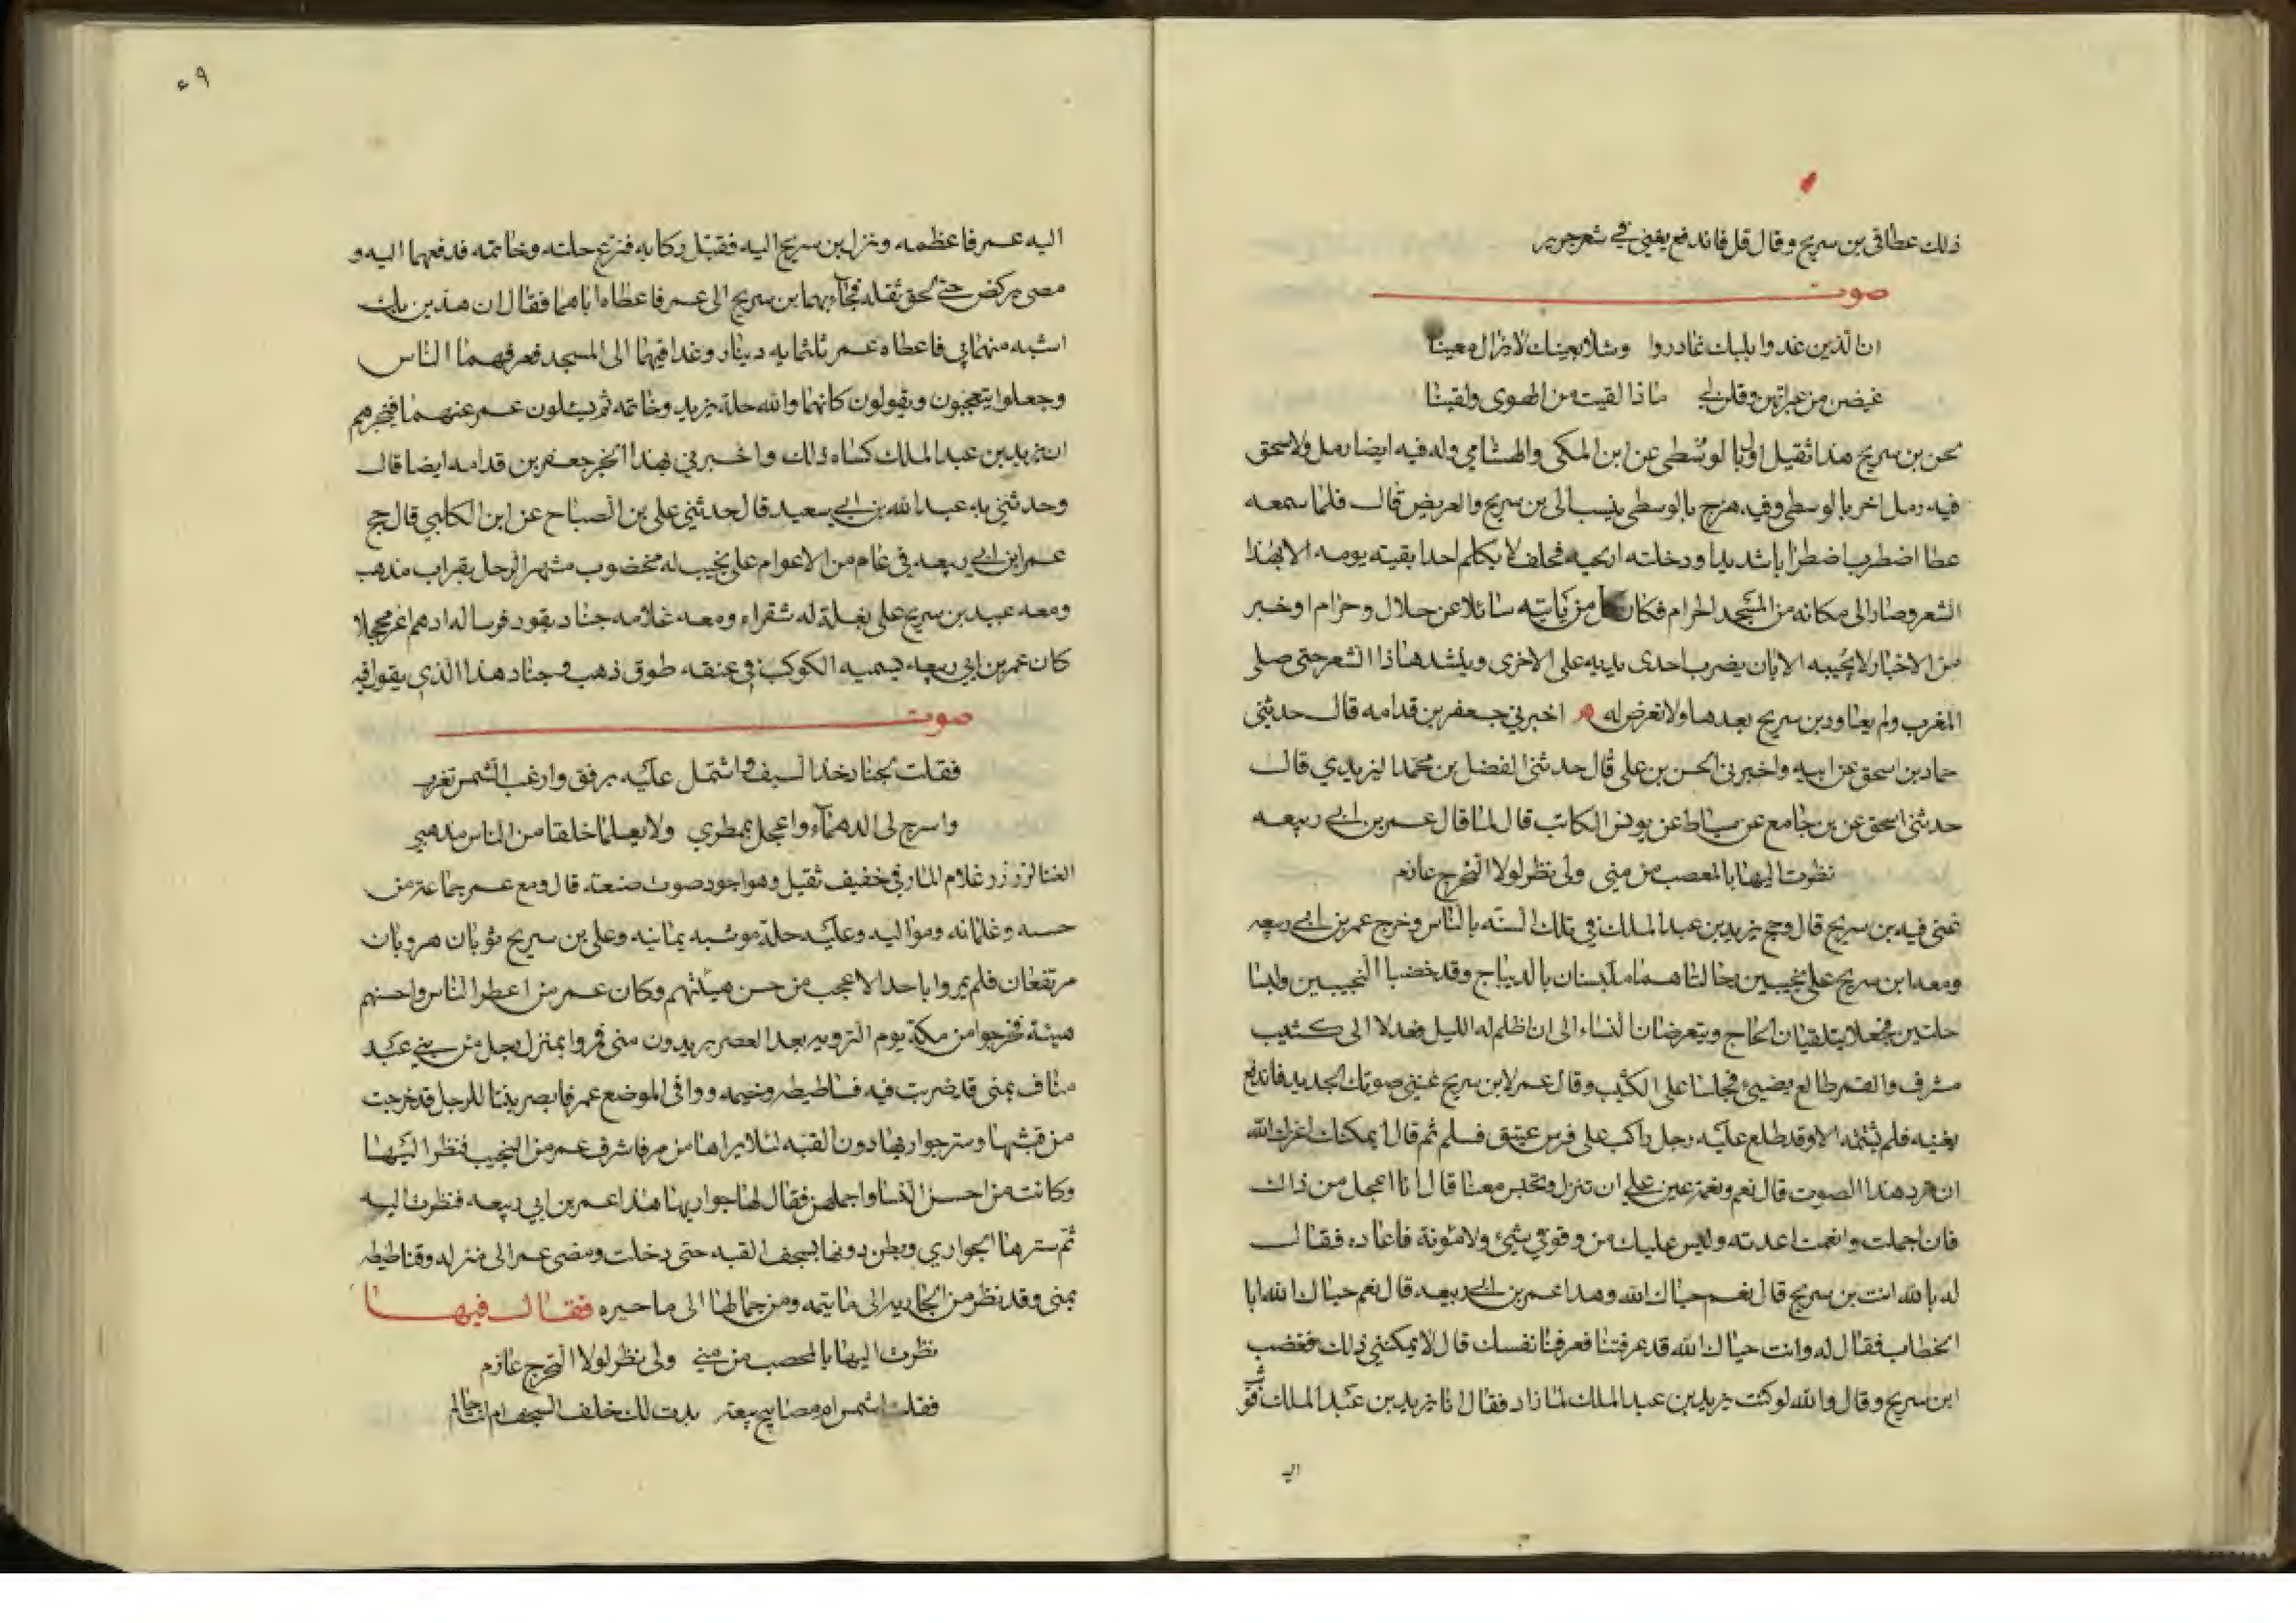 ذلك عطا في بن سريج وقال قل فاندفع يغني في شعر جرير
صوت
ان الذين غدوا بلبك غادروا وشلا بعينك لا يزال معينا
غيضن من عبراتهن وقلن لي ماذا لقيت من الهوى ولقينا
لحن بن سريج هذا ثقيل اول بالوسطى عن ابن المكى والهشامي وله فيه ايضا رمل ولاسحق
فيه رمل اخر بالوسطى وفيه هزج بالوسطى ينسب الى بن سريج والغريض قال فلما سمعه
عطا اضطرب اضطرابا شديدا ودخلته اريحيه فحلف لا يكلم احدا بقيته يومه الا بهذا
الشعر وصار الى مكانه من المسجد الحرام فكان كل من ياتيه سائلا عن حلال وحرام او خبر
من الاخبار لا يجيبه الا بان يضرب احدى يديه على الاخرى وينشد هذا الشعر حتى صلى
المغرب ولم يعاود بن سريج بعدها ولا تعرض له ه اخبرني جعفر بن قدامه قال حدثنى
حماد بن اسحق عن ابيه واخبرنى الحسن بن على قال حدثنا الفضل بن محمد اليزيدي قال
حدثنى اسحق عن بن جامع عن سياط عن يونس الكاتب قال لما قال عمر بن ابي ربيعه
نظرت اليها بالمحصب من منى ولى نظر لولا التحرج عازم
غنى فيه بن سريج قال وحج يزيد بن عبد الملك في تلك السنه بالناس وخرج عمر بن ابي ربيعه
ومعه ابن سريج على نجيبين رحالتاهما ملبستان بالديباج وقد خضبا النجيبين ولبسا
حلتين فجعلا يتلقيان الحاج ويتعرضان للنساء الى ان اظلم الليل فعدلا الى كثيب
مشرف والقمر طالع يضيئ فجلسا على الكثيب وقال عمر لابن سريج غننى صوتك الجديد فاندفع
يغنيه فلم يتمه الا وقد طلع عليه رجل راكب على فرس عتيق فسلم ثم قال ايمكنك اعزك الله
ان ترد هذا الصوت قال نعم ونعمة عين على ان تنزل وتجلس معنا قال انا اعجل من ذلك
فان اجملت وانعمت اعدته وليس عليك من وقوفي شيئ ولا مئونة فاعاده فقال
له بالله انت بن سريج قال نعم حياك الله وهذا عمر بن ابي ربيعه قال نعم حياك الله ابا
الخطاب فقال له وانت حياك الله قد عرفتنا فعرفنا نفسك قال لا يمكننى ذلك فغضب
ابن سريج وقال والله لو كنت يزيد بن عبد الملك لما زاد فقال انا يزيد بن عبد الملك فوثب
اليه
اليه عمر فاعظمه ونزل بن سريج اليه فقبل ركابه فنزع حلته وخاتمه فدفعهما اليه و
مضى يركض حتى لحق ثقله فجآء بهما بن سريج الى عمر فاعطاه اياهما فقال ان هذين بك
اشبه منهما بي فاعطاه عمر ثلثمايه دينار وغدا فيهما الى المسجد فعرفهما الناس
وجعلوا يتعجبون ويقولون كانهما والله حلة يزيد وخاتمه ثم يسئلون عمر عنهما فيخبرهم
ان يزيد بن عبد الملك كساه ذلك واخبرني بهذا الخبر جعفر بن قدامه ايضا قال
وحدثني به عبد الله بن ابي سعيد قال حدثني على بن الصباح عن ابن الكلبي قال حج
عمر ابن ابي ربيعه في عام من الاعوام على نجيب له مخضوب مشهر الرحل بقراب مذهب
ومعه عبيد بن سريج على بغلة له شقراء ومعه غلامه جناد يقود فرسا له ادهم اغر محجلا
كان عمر بن ابي ربيعه يسميه الكوكب في عنقه طوق ذهب وجناد هذا الذي يقول فيه
صوت
فقلت لجناد خذ السيف واشتمل عليه برفق وارقب الشمس تغرب
واسرج لى الدهمآء واعجل بممطري ولا يعلما خلقا من الناس مذهبي
الغنا لزرزر غلام المارقي خفيف ثقيل وهو اجود صوت صنعه قال ومع عمر جماعة من
حشمه وغلمانه ومواليه وعليه حلة موشيه يمانيه وعلى بن سريج ثوبان هرويان
مرتفعان فلم يمروا باحد الا عجب من حسن هيئتهم وكان عمر من اعطر الناس واحسنهم
هيئة فخرجوا من مكة يوم الترويه بعد العصر يريدون منى فمروا بمنزل رجل من بني عبد
مناف بمنى قد ضربت فيه فساطيطه وخيمه ووافى الموضع عمر فابصر بنتا للرجل قد خرجت
من قبتها وستر جواريها دون القبه لئلا يراها من مر فاشرف عمر من النجيب فنظر اليها
وكانت من احسن النسا واجملهن فقال لها جواريها هذا عمر بن ابي ربيعه فنظرت اليه
ثم سترها الجواري وبطن دونها بسجف القبه حتى دخلت ومضى عمر الى منزله وفساطيطه
بمنى وقد نظر من الجاريه الى ما تيمه ومن جمالها الى ما حيره فقال فيها
نظرت اليها بالمحصب من منى ولى نظر لولا التحرج عازم
فقلت اشمس ام مصابيح بيعة بدت لك خلف السجف ام انت حالم